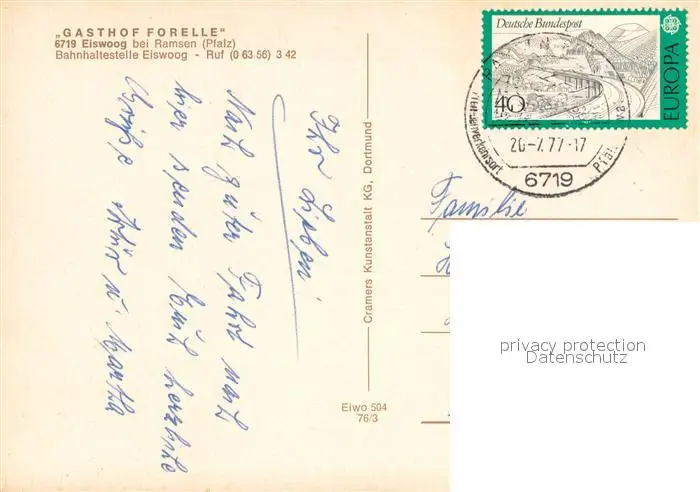 „GASTHOF FORELLE"
6719 Eiswoog bei Ramsen (Pfalz)
Bahnhaltestelle Eiswoog - Ruf (0 63 56) 3 42
Ihr Lieben
Nach guter Fahrt nach
hier senden Euch herzliche
Grüße
Cramers Kunstanstalt KG, Dortmund
Eiwo 504
76/3
Deutsche Bundespost
40
EUROPA
20-7.77-17
6719
Familie
privacy protection
Datenschutz